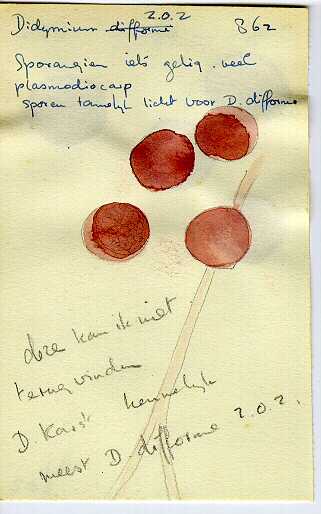 z.o.z
Didymium difforme 862
Sporangien iets gelig. veel
plasmodiocarp
sporen tamelijk licht voor D. difforme
deze kan ik niet
terug vinden
D. Karst kennelijk
meest D. difforme z.o.z.